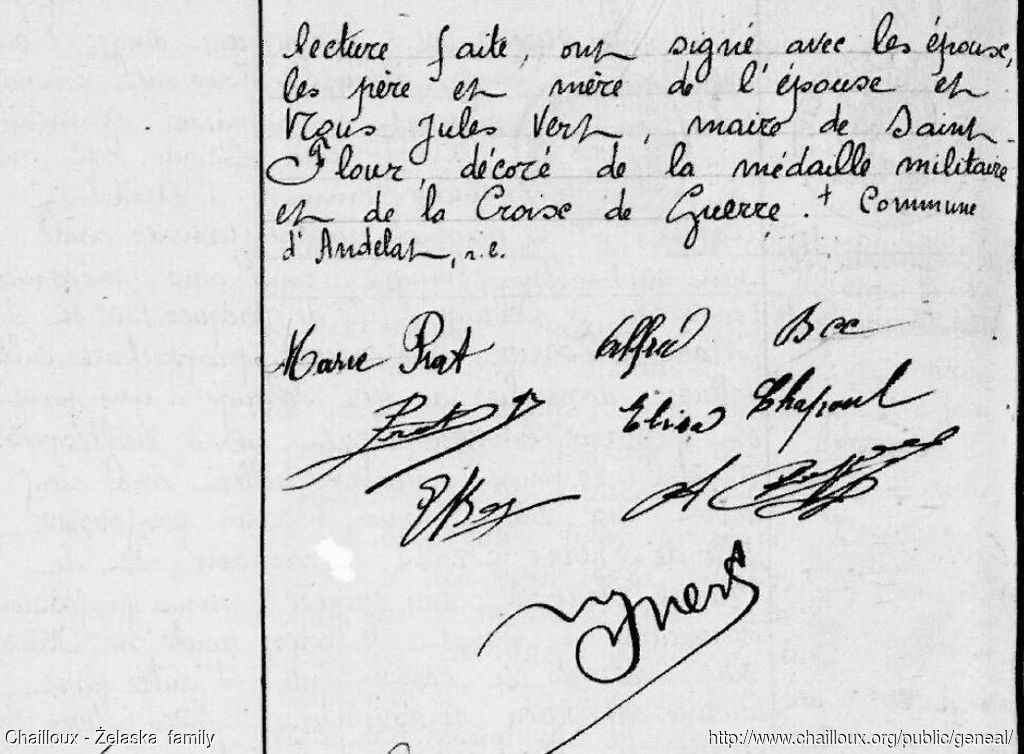 lecture faite, ont signé avec les épouse,
les père et mère de l'épouse et
Nous Jules Vert, maire de Saint
Flour, décoré de la médaille militaire
et de la Croix de Guerre. + Commune
d'Andelat, r.e.
Marie Prat Alfred Bec
Prat Elisa Chapoul
A
JVert
Chailloux - Želaska family http://www.chailloux.org/public/geneal/